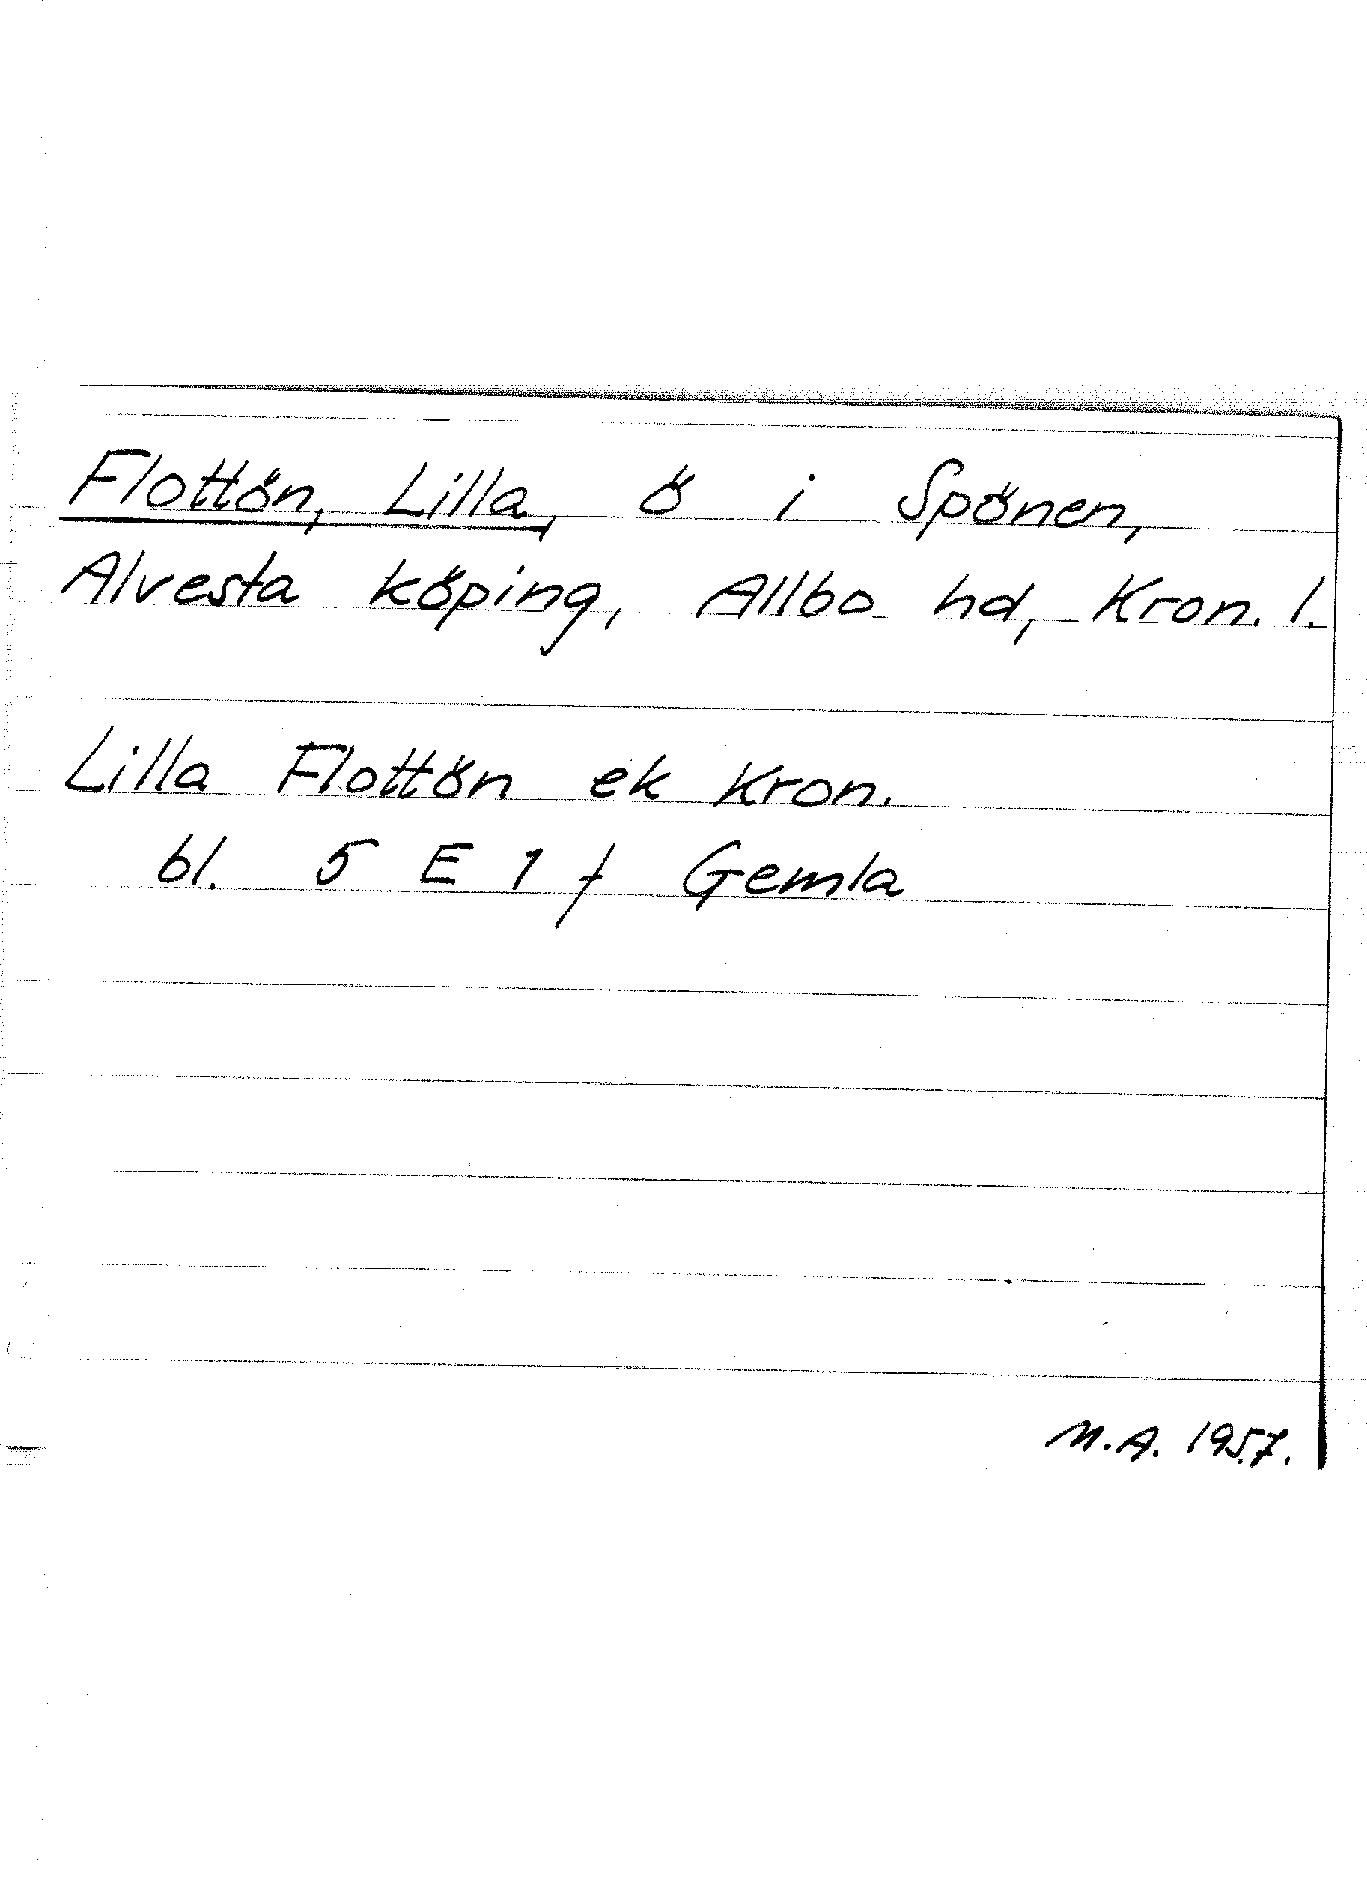 Flottön, Lilla, ö i Spönen,
Alvesta köping, Allbo hd, Kron. l.
Lilla Flottön ek Kron.
bl. 5 E 1 f Gemla
M.A. 1957.